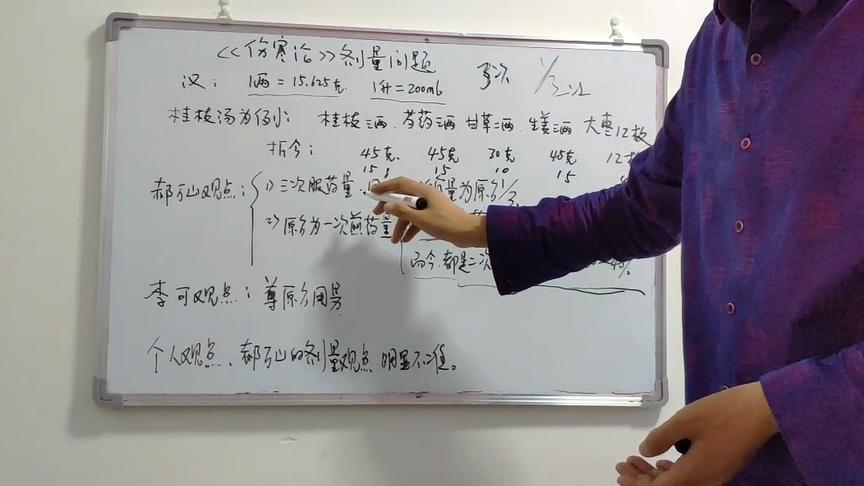 <<伤寒论>>剂量问题
汉： 1两=15.625克 1升=200ml
3次 1/3
桂枝汤为例： 桂枝三两、芍药三两 甘草二两、生姜三两 大枣12枚
折今： 45克 45克 30克 45克 12
15 15 10 15
郝万山观点：
1) 三次服药量 量为原方1/3
2) 原方为一次煎药量
而今都是二次
李可观点：尊原方用量
个人观点、郝万山的剂量观点明显不准。